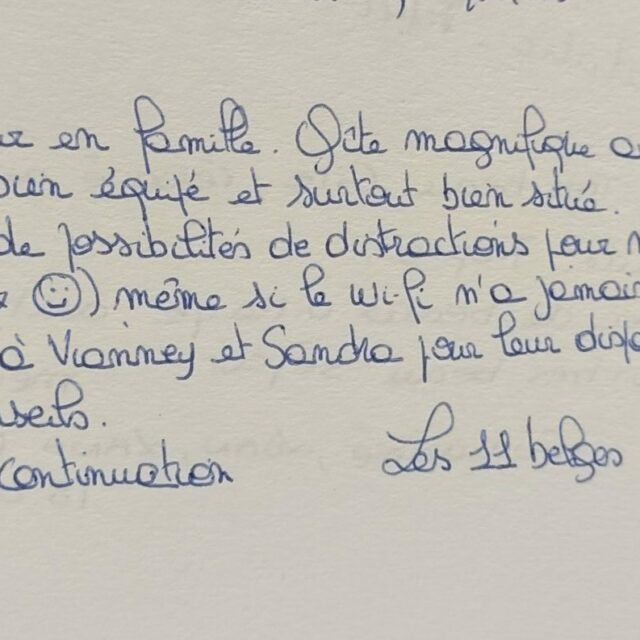 en famille. Gîte magnifique
bien équipé et surtout bien situé.
de possibilités de distractions pour
☺) même si le wi-fi n'a jamais
à Vianney et Sandra pour leur dispo
nseils.
continuation Les 11 belges